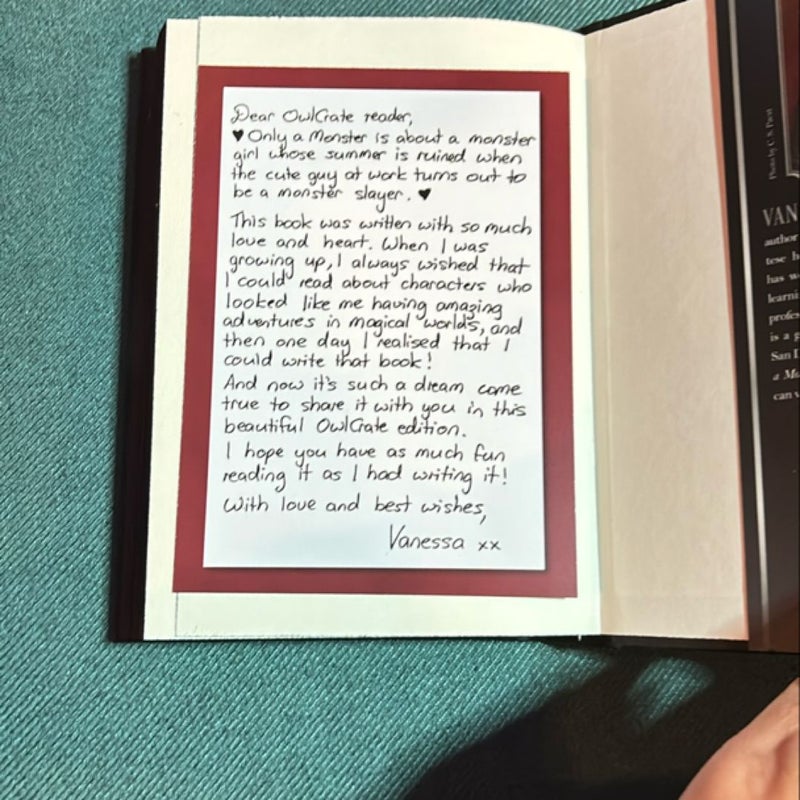 Dear OwlCrate reader,
♥ Only a Monster is about a monster
girl whose summer is ruined when
the cute guy at work turns out to
be a monster slayer. ♥
This book was written with so much
love and heart. When I was
growing up, I always wished that
I could read about characters who
looked like me having amazing
adventures in magical worlds, and
then one day I realised that I
could write that book!
And now it's such a dream come
true to share it with you in this
beautiful OwlCrate edition.
I hope you have as much fun
reading it as I had writing it!
With love and best wishes,
Vanessa xx
Photo by
VAN
author
tese
has
learni
profes
is a
San
a
can